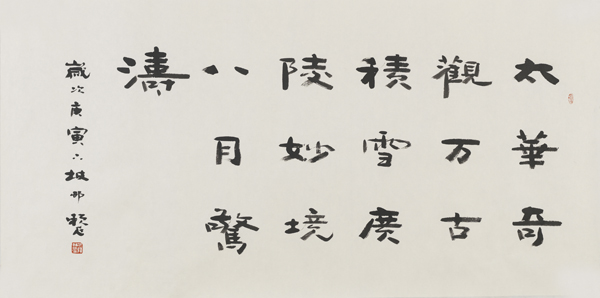 太華奇
觀万古
積雪廣
陵妙境
八月驚
濤
歲次庚寅六坡邨